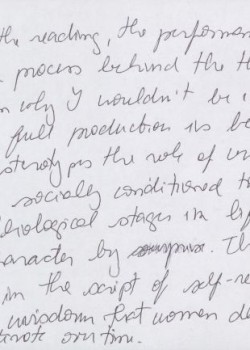 the reading, the performan
process behind the th
why I wouldn't be i
full production is be
the role of w
socially conditioned t
biological stages in lif
aracter by Th
in the script of self-re
wisdom that women de
over time.